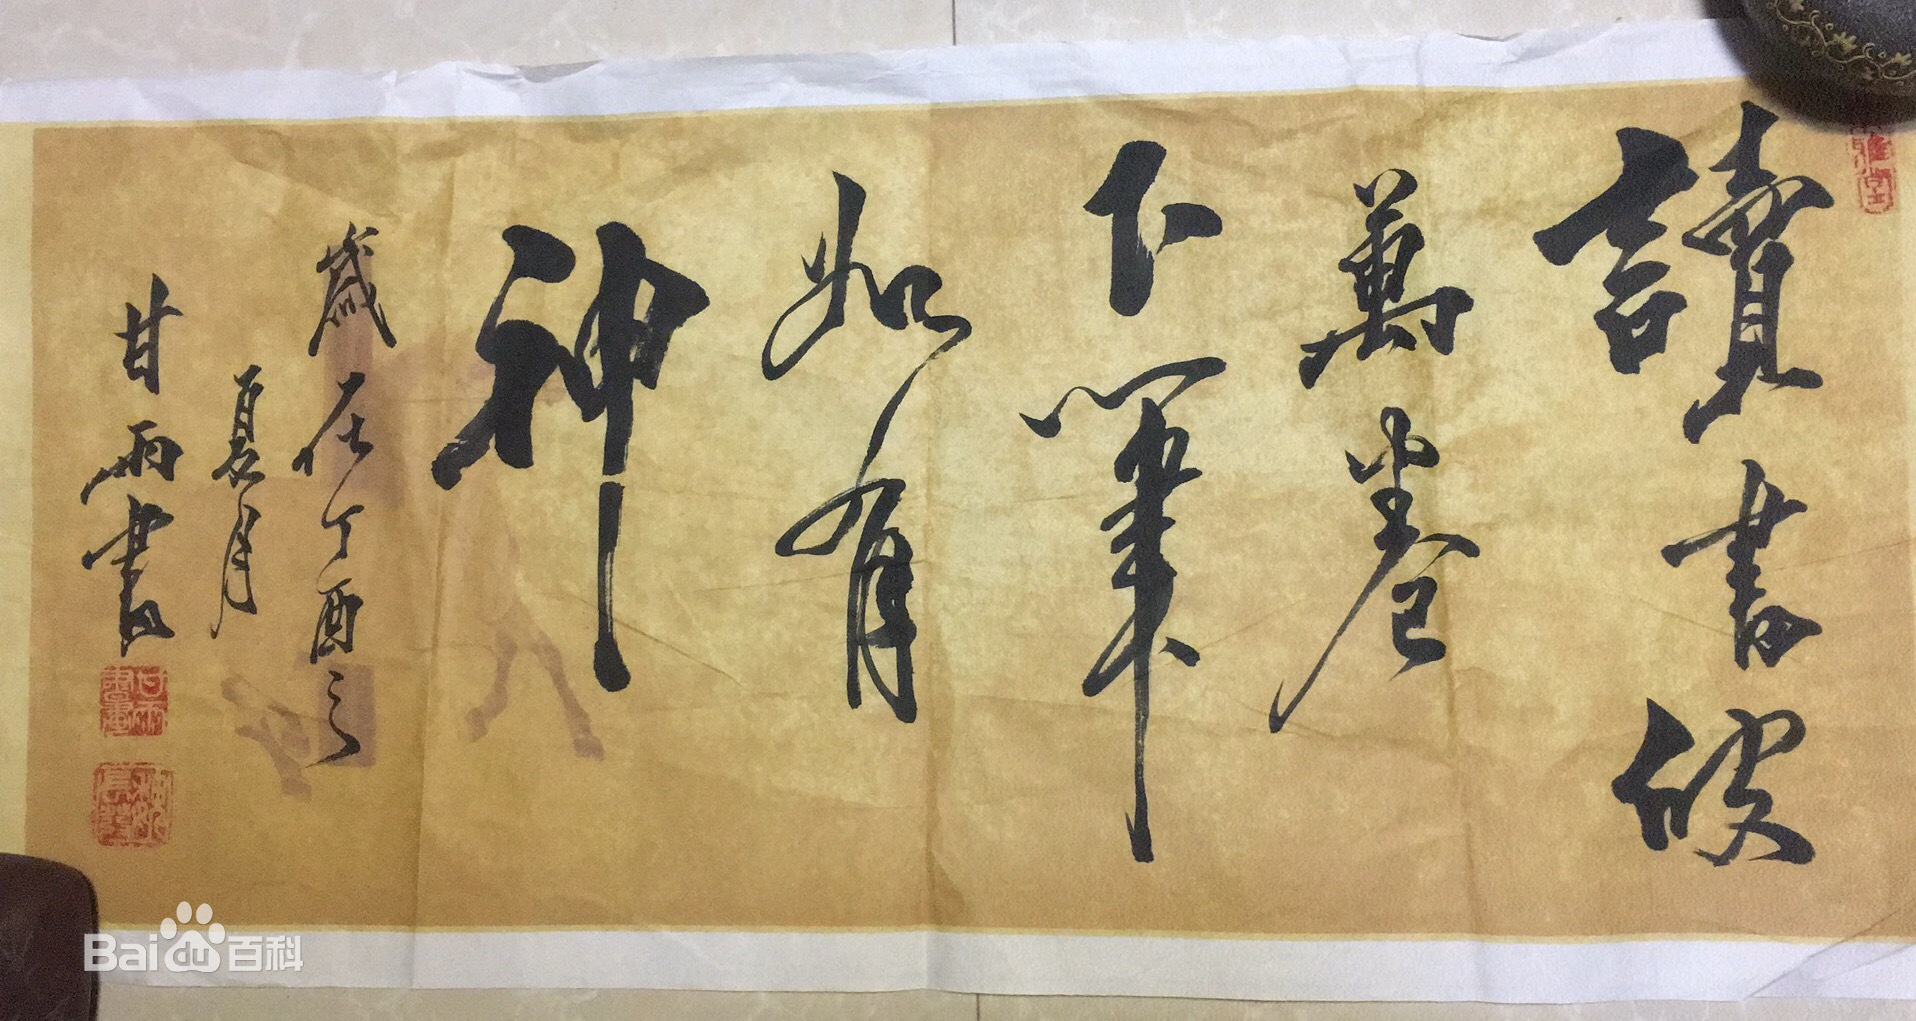 讀書破
萬卷
下筆
如有
神
歲在丁酉之
夏月
甘雨書
Baidu百科